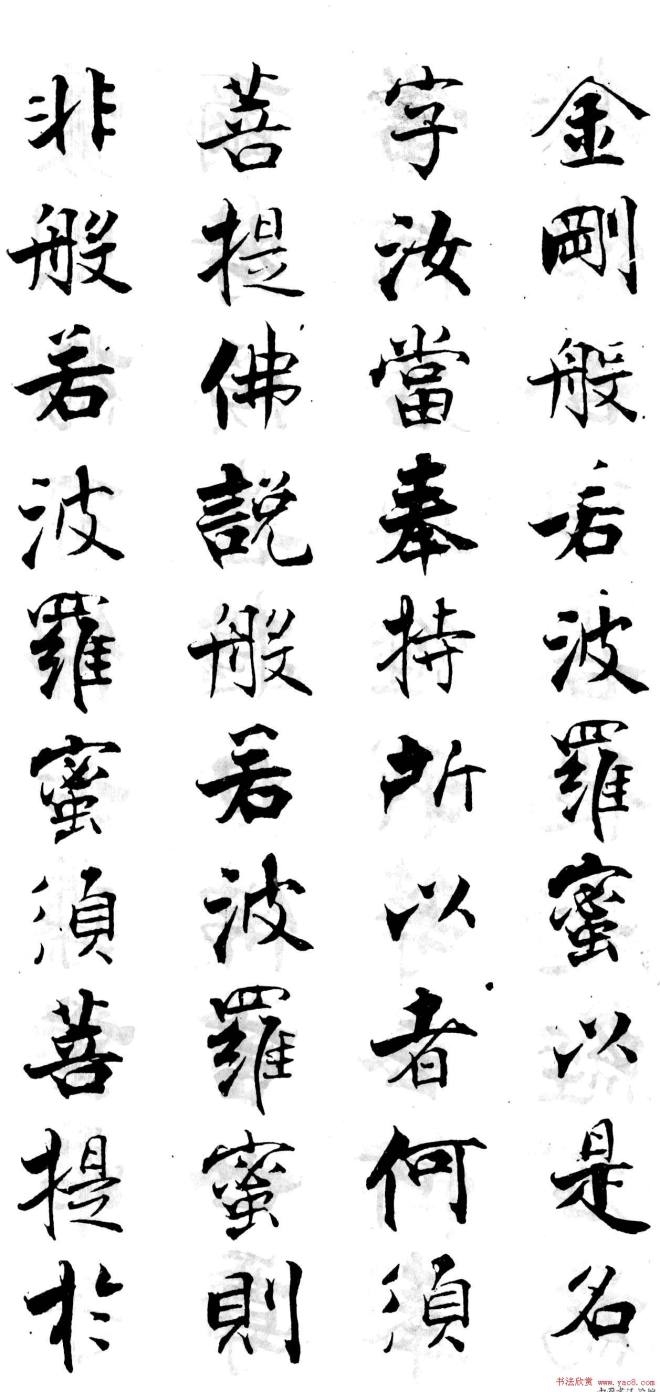 金剛般若波羅蜜以是名
字汝當奉持所以者何須
菩提佛說般若波羅蜜則
非般若波羅蜜須菩提於
书法欣赏 www.yac8.com